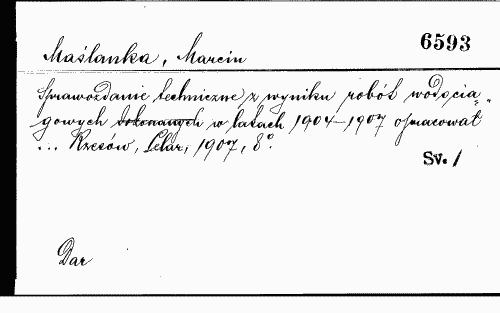 6593
Maślanka, Marcin
Sprawozdanie techniczne z wyniku robót wodocią-
gowych dokonanych w latach 1904-1907 opracował
... Rzeszów, Pelar, 1907, 8°.
Sv. 1
Dar